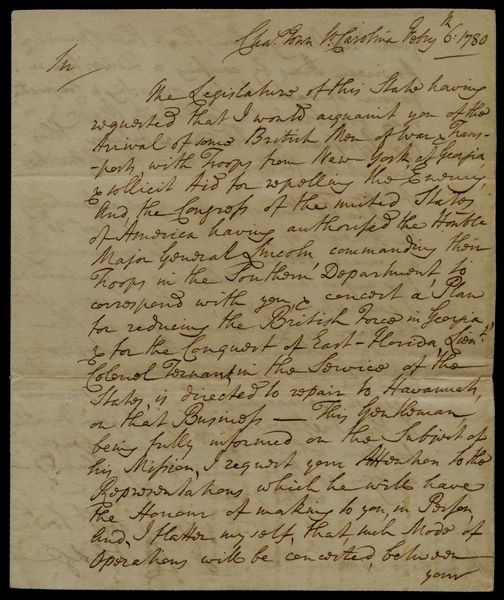 Cha.s Town So. Carolina Feby 6th: 1780
Sir
The Legislature of this State having
requested that I would acquaint you of the
Arrival of some British Men of War & Trans-
-ports, with Troops from New-York, at Georgia
& sollicit Aid for repelling the Enemy,
And, the Congress of the united States
of America having authorised the Honble
Major General Lincoln, commanding their
Troops in the Southern Department, to
correspond with you, & concert a Plan
for reducing the British Force in Georgia
& for the Conquest of East-Florida, Lieut.
Colonel Ternant, in the Service of the
States, is directed to repair to Havannah,
on that Business — This Gentleman
being fully informed on the Subject of
his Mission, I request your Attention to the
Representations which he will have
the Honour of making to you, in Person,
And, I flatter myself, that, such Mode of
Operations will be concerted, between
your